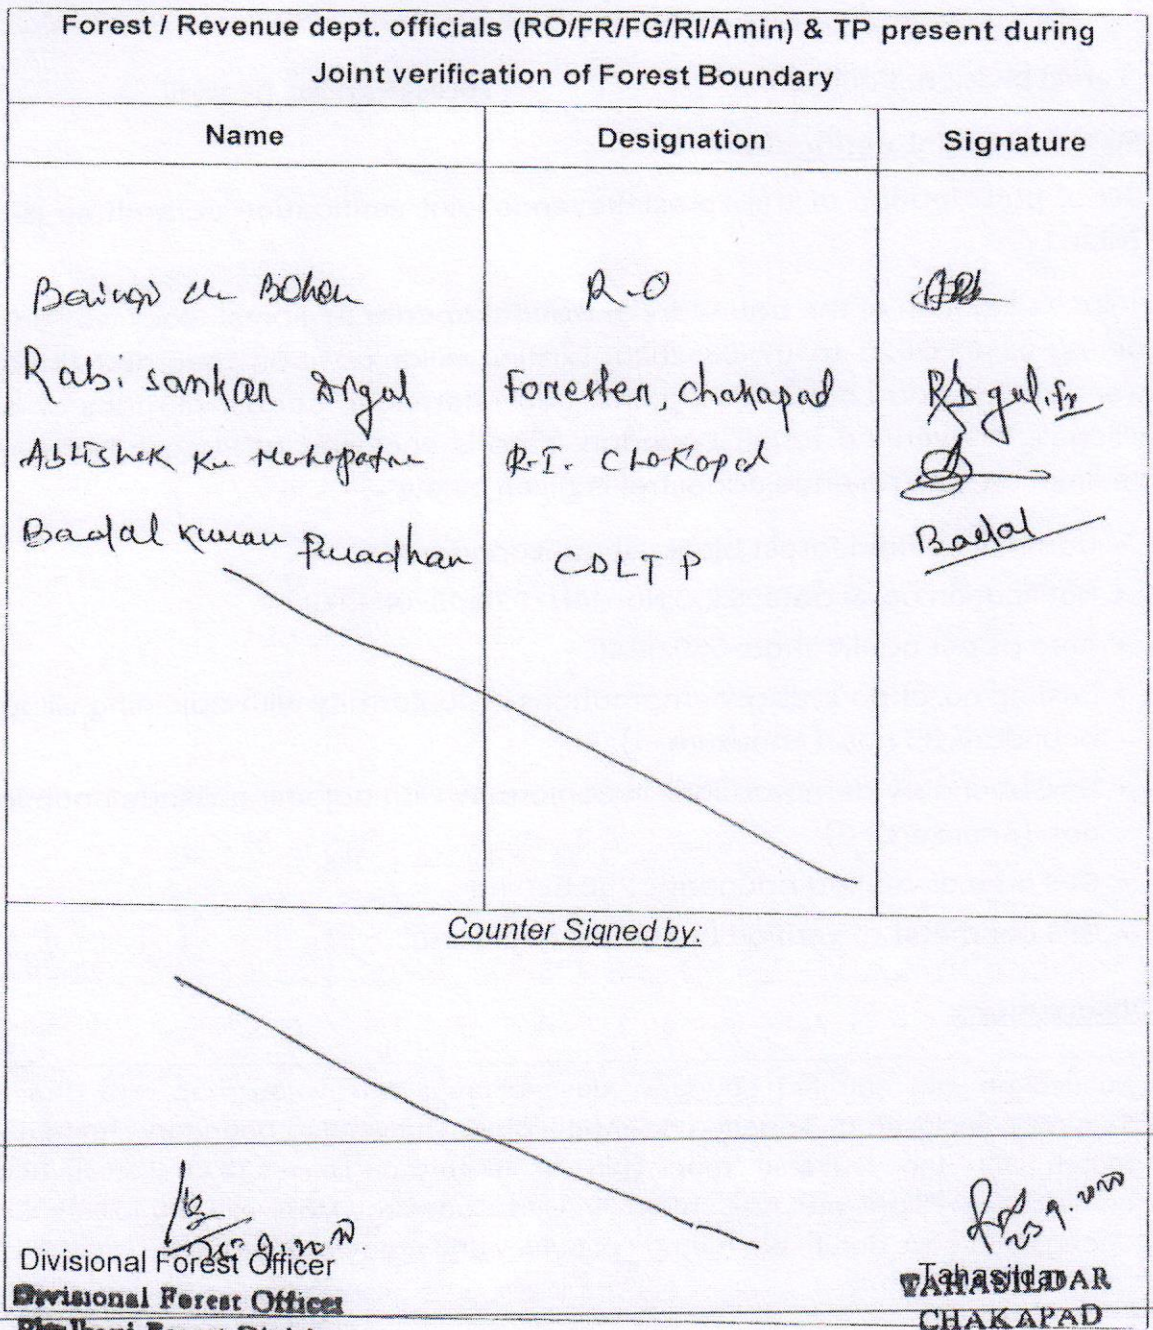 Forest / Revenue dept. officials (RO/FR/FG/RI/Amin) & TP present during
Joint verification of Forest Boundary
Name Designation Signature
R-O
Rabi sankar Digal Forester, chakapad RDigal, Fr
Abhishek Ku Mohapatra R.I. Chakapad
Badal Kumar Pradhan CDLTP Badal
Counter Signed by:
23.9.2020
Divisional Forest Officer Tahasildar
Divisional Forest Officer TAHASILDAR
CHAKAPAD